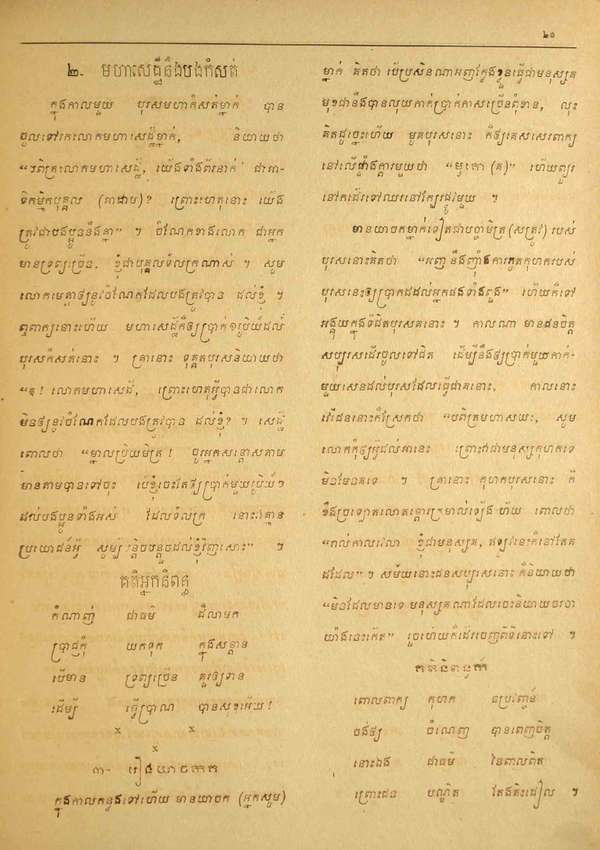 ២០
២- មហាសេដ្ឋីនិងបងកំសត់
ក្នុងកាលមួយ បុរសមហាកំសត់ម្នាក់ បាន
ចូលទៅរកលោកមហាសេដ្ឋីម្នាក់, និយាយថា
“បពិត្រលោកមហាសេដ្ឋី, យើងទាំងពីរនាក់ ជាអា-
ទិកម្មិកបុគ្គល (អាដាម)? ព្រោះហេតុនោះ យើង
ត្រូវជាបងប្អូននឹងគ្នា” ។ ចំណែកខាងលោក ជាអ្នក
មានទ្រព្យច្រើន. ខ្ញុំជាបុគ្គលទ័លក្រណាស់ ។ សូម
លោកមេត្តាឲ្យនូវចំណែកដែលបងត្រូវបាន ដល់ខ្ញុំ ។
ឮពាក្យនោះហើយ មហាសេដ្ឋីក៏ឲ្យប្រាក់១ប្រ៊ិយ៍ដល់
បុរសកំសត់នោះ ។ គ្រានោះ ទុគ្គតបុរសនិយាយថា
“ឱ! លោកមហាសេដ្ឋី, ព្រោះហេតុអ្វីបានជាលោក
មិនឲ្យនូវចំណែកដែលបងត្រូវបាន ដល់ខ្ញុំ? ។ សេដ្ឋី
ពោលថា “ម្នាលប្រិយមិត្រ! ចូរអ្នកសន្តោសតាម
មានតាមបានទៅចុះ បើខ្ញុំចេះតែឲ្យប្រាក់មួយប្រ៊ិយ៍ៗ
ដល់បងប្អូនទាំងអស់ ដែលទ័លក្រ នោះវាគ្មាន
ប្រយោជន៍អ្វី សូម្បី បន្តិចបន្តួចដល់ខ្ញុំវិញសោះ” ។
គតិអ្នកនិពន្ធ
កំណាញ់ ជាធម៌ ដ៏លាមក
ប្រាជ្ញក៏ យកទុក ក្នុងសន្តាន
បើមាន ទ្រព្យច្រើន គួរឲ្យទាន
ដើម្បី ធ្វើប្រាណ បានសុខអើយ!
x x
x
៣- រឿងយាចកកាក
ក្នុងកាលកន្លងទៅហើយ មានយាចក (អ្នកសូម)
ម្នាក់ គិតថា បើប្រសិនណាអញក្លែងខ្លួនធ្វើជាមនុស្សគ
មុខជានឹងបានលុយកាក់ប្រាក់កាសច្រើនពុំខាន, លុះ
គិតដូច្នេះហើយ ម្នេតបុរសនោះ ក៏ឲ្យគេសរសេរពាក្យ
នៅលើផ្ទាំងក្តារមួយថា “មូគោ (គ)” ហើយព្យួរ
នៅកដើរទៅឈរនៅក្បែរផ្លូវមួយ ។
មានយាចកម្នាក់ទៀតជាបច្ចាមិត្រ (សត្រូវ) របស់
បុរសនោះគិតថា “អញនឹងញ៉ាំងការភូតកុហករបស់
បុរសនេះឲ្យប្រាកដដល់អ្នកផងទាំងពួង” ហើយក៏ទៅ
អង្គុយក្នុងទីជិតបុរសគនោះ ។ កាលណា មានជនចិត្ត
សប្បុរសដើរចូលទៅជិត ដើម្បីនឹងឲ្យប្រាក់មួយកាក់-
មួយសេនដល់បុរសដែលធ្វើជាគនោះ, កាលនោះ
វើជននោះក៏ស្រែកថា “បពិត្រមហាសយៈ, សូម
លោកកុំឲ្យអ្វីដល់អានេះ ព្រោះវាជាមនុស្សកុហកទេ
មិនមែនគទេ ។ គ្រានោះ កុហកបុរសនោះ ក៏
ខឹងប្រទេចលោតក្តោរក្រហល់ឡើង ហើយ ពោលថា
“កាលកាលវេលា ខ្ញុំជាមនុស្សគ, ឥឡូវនេះក៏នៅតែគ
ដដែល” ។ សម័យនោះជនសប្បុរសនោះ ក៏និយាយថា
“មិនដែលមានទេ មនុស្សគណាដែលចេះនិយាយចរចា
យ៉ាងនេះកើត” រួចហើយក៏ដើរចេញពីទីនោះទៅ ។
គតិនិទានអ្នក
ពោលពាក្យ កុហក បប្រវ័ញ្ចន៍
ចង់ឲ្យ ចំណេញ បានពេញចិត្ត
នោះឯង ជាធម៌ នៃពាលពិត
ព្រោះជន បណ្ឌិត តែងតិះដៀល ។